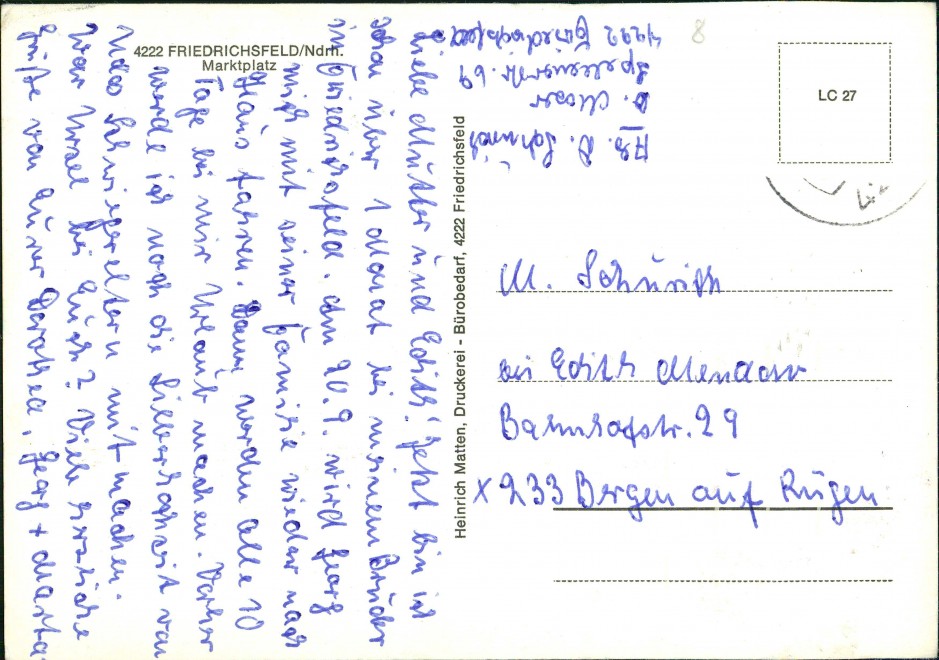 4222 FRIEDRICHSFELD/Ndrh.
Marktplatz
Liebe Mutter und Edith! Jetzt bin ich
schon über 1 Monat bei meinem Bruder
in Friedrichsfeld. Am 20.9. wird Georg
mich mit seiner Familie wieder nach
Haus fahren. Dann werden alle 10
Tage bei mir Urlaub machen. Vorher
werde ich noch die Silberhochzeit von
Udos Schwiegereltern mitmachen.
War Ursel bei Euch? Viele herzliche
Grüße von Eurer Dorothea, Georg + Marta.
Heinrich Matten, Druckerei - Bürobedarf, 4222 Friedrichsfeld
Abs. D. Schurich
b. Moser
Spellenerstr. 69
4222 Friedrichsfeld
8
LC 27
M. Schurich
bei Edith Mendow
Bahnhofstr. 29
X 233 Bergen auf Rügen